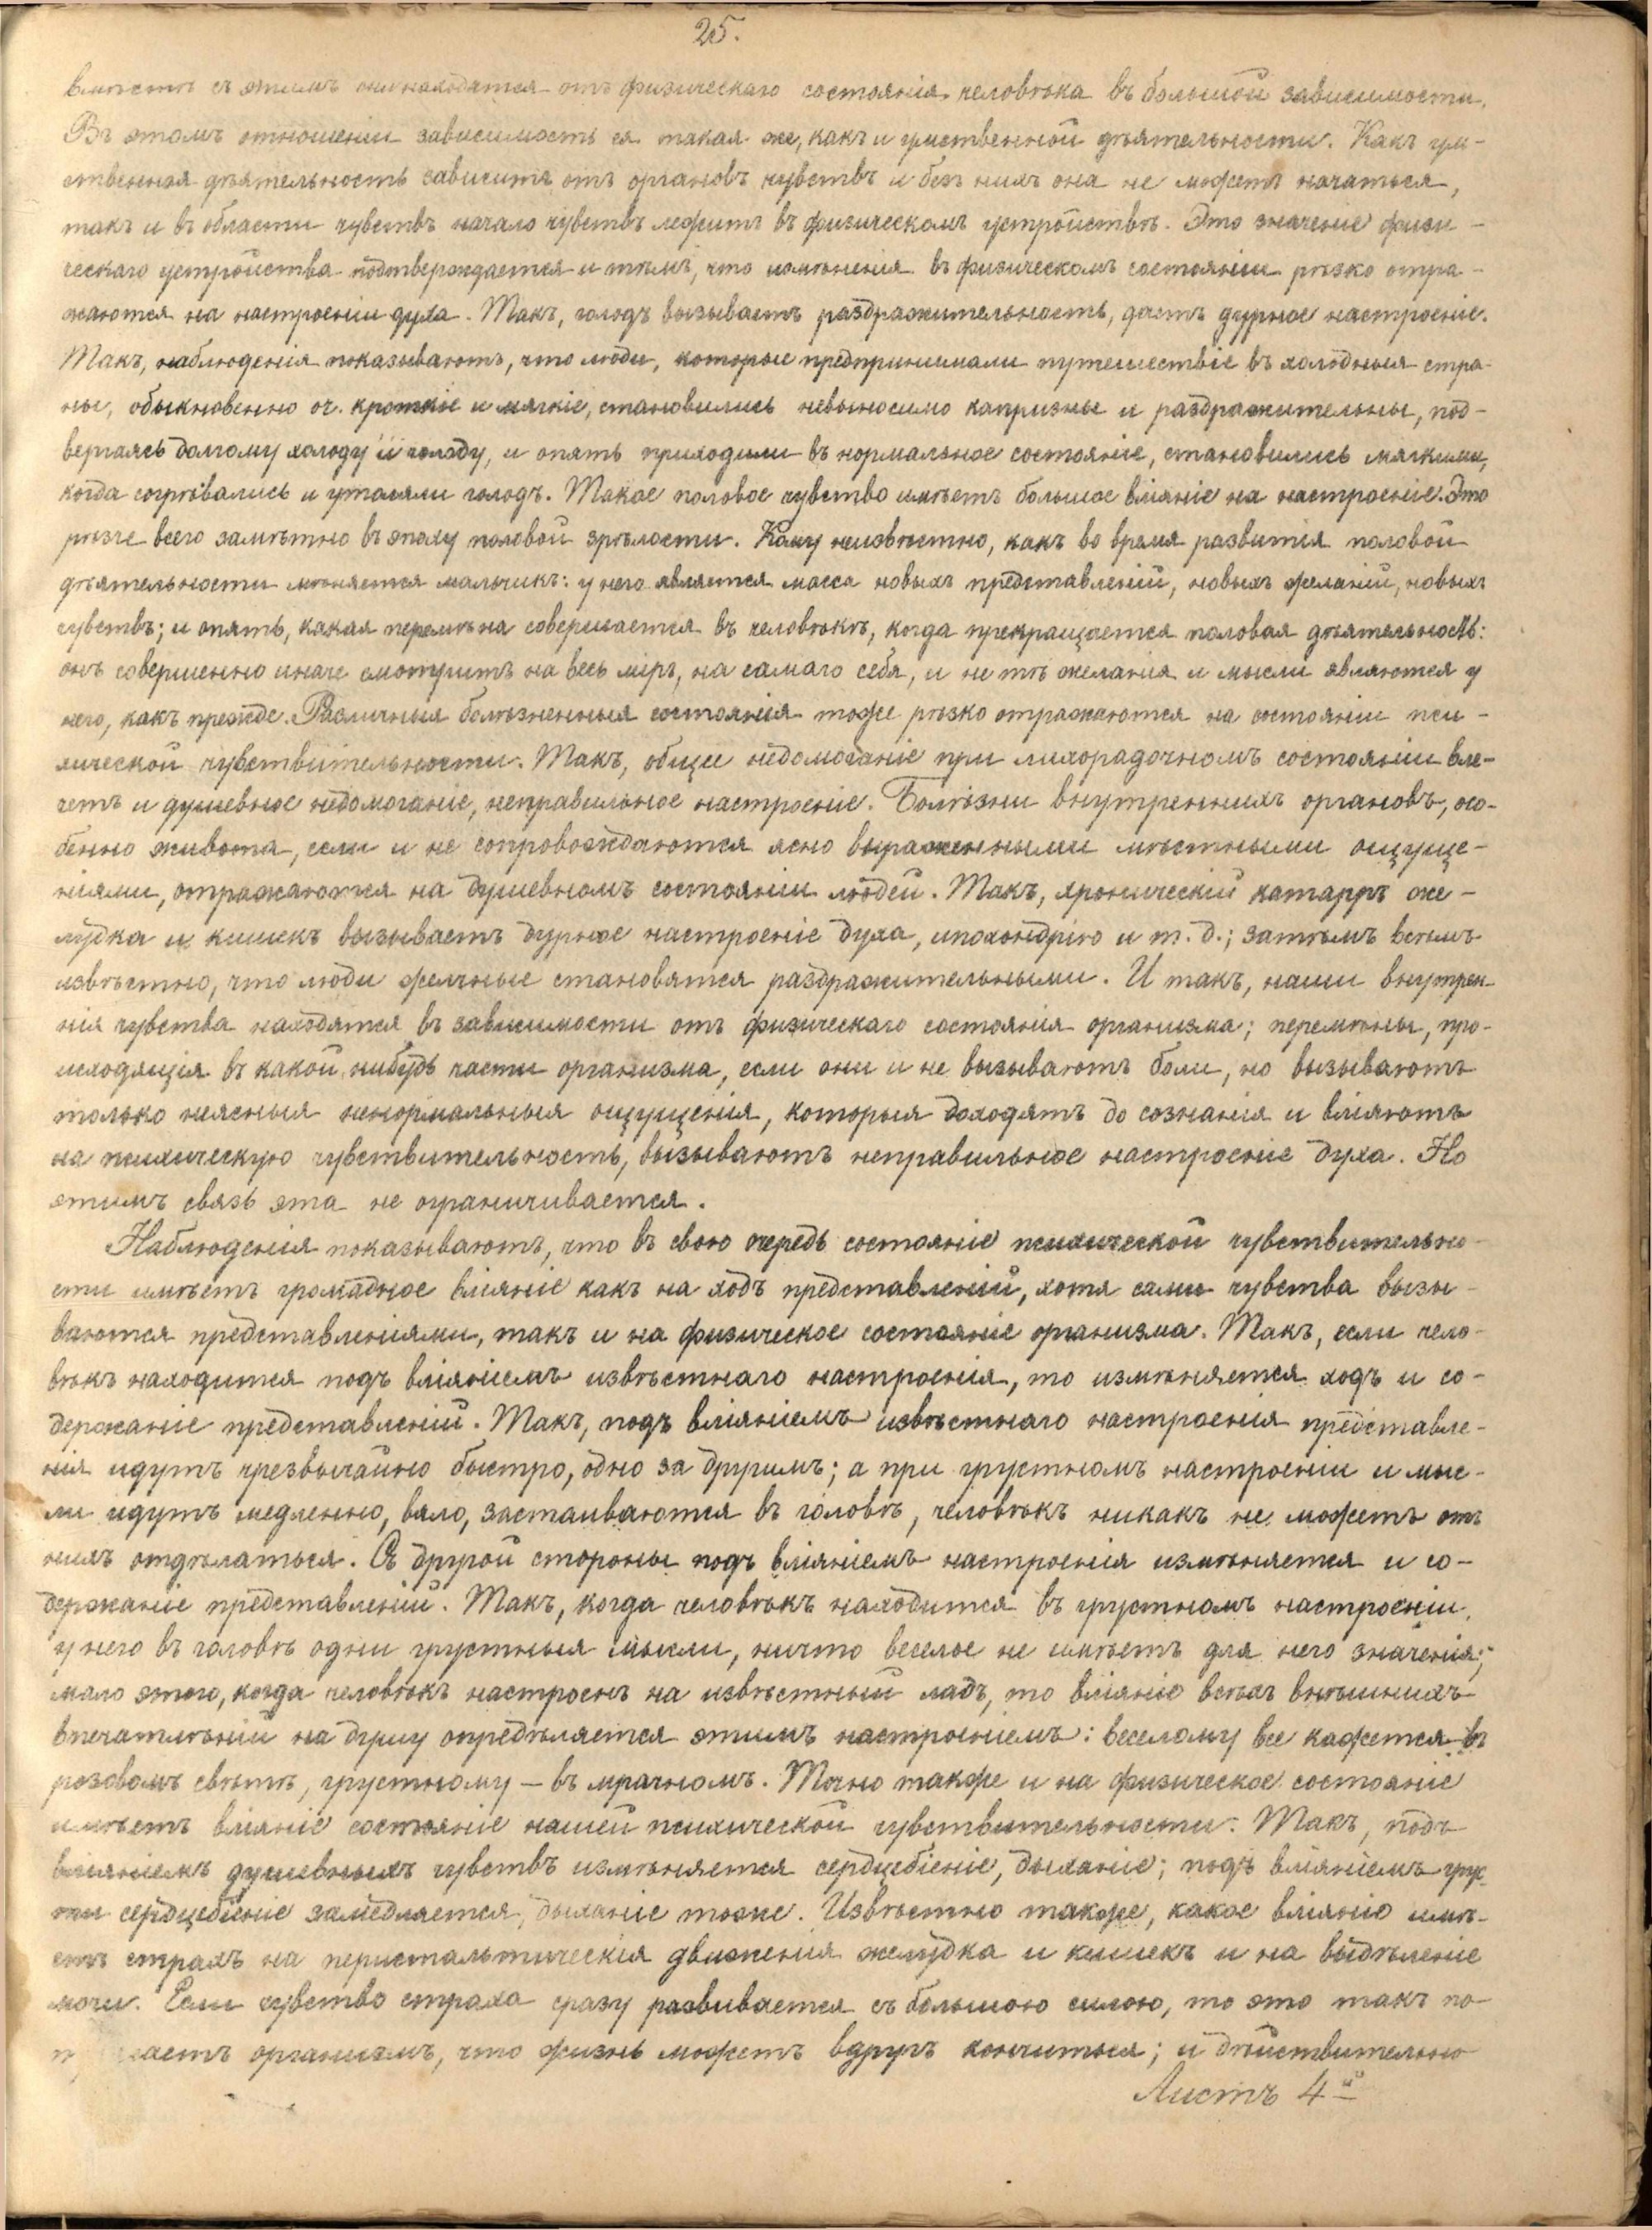 25.
вмѣстѣ съ этимъ они находятся отъ физическаго состоянія человѣка въ большой зависимости.
Въ этомъ отношеніи зависимость ея такая же, какъ и умственной дѣятельности. Какъ ум-
ственная дѣятельность зависитъ отъ органовъ чувствъ и безъ нихъ она не можетъ начаться,
такъ и въ области чувствъ начало чувствъ лежитъ въ физическомъ устройствѣ. Это значеніе физи-
ческаго устройства подтверждается и тѣмъ, что измѣненія въ физическомъ состояніи рѣзко отра-
жаются на настроеніи духа. Такъ, голодъ вызываетъ раздражительность, даетъ дурное настроеніе.
Такъ, наблюденія показываютъ, что люди, которые предпринимали путешествіе въ холодныя стра-
ны, обыкновенно оч. кроткіе и мягкіе, становились невыносимо капризны и раздражительны, под-
вергаясь долгому холоду и голоду, и опять приходили въ нормальное состояніе, становились мягкими,
когда согрѣвались и утоляли голодъ. Такое половое чувство имѣетъ большое вліяніе на настроеніе. Это
рѣзче всего замѣтно въ эпоху половой зрѣлости. Кому неизвѣстно, какъ во время развитія половой
дѣятельности мѣняется мальчикъ: у него является масса новыхъ представленій, новыхъ желаній, новыхъ
чувствъ; и опять, какая перемѣна совершается въ человѣкѣ, когда прекращается половая дѣятельность:
онъ совершенно иначе смотритъ на весь міръ, на самаго себя, и не тѣ желанія и мысли являются у
него, какъ прежде. Различныя болѣзненныя состоянія тоже рѣзко отражаются на состояніи пси-
хической чувствительности. Такъ, общее недомоганіе при лихорадочномъ состояніи вле-
четъ и душевное недомоганіе, неправильное настроеніе. Болѣзни внутреннихъ органовъ, осо-
бенно живота, если и не сопровождаются ясно выраженными мѣстными ощуще-
ніями, отражаются на душевномъ состояніи людей. Такъ, хроническій катарръ же-
лудка и кишекъ вызываетъ дурное настроеніе духа, ипохондрію и т. д.; затѣмъ всѣмъ
извѣстно, что люди желчные становятся раздражительными. И такъ, наши внутрен-
нія чувства находятся въ зависимости отъ физическаго состоянія организма; перемѣны, про-
исходящія въ какой нибудь части организма, если они и не вызываютъ боли, но вызываютъ
только неясныя ненормальныя ощущенія, которыя доходятъ до сознанія и вліяютъ
на психическую чувствительность, вызываютъ неправильное настроеніе духа. Но
этимъ связь эта не ограничивается.
Наблюденія показываютъ, что въ свою очередь состояніе психической чувствительно-
сти имѣетъ громадное вліяніе какъ на ходъ представленій, хотя сами чувства вызы-
ваются представленіями, такъ и на физическое состояніе организма. Такъ, если чело-
вѣкъ находится подъ вліяніемъ извѣстнаго настроенія, то измѣняется ходъ и со-
держаніе представленій. Такъ, подъ вліяніемъ извѣстнаго настроенія представле-
нія идутъ чрезвычайно быстро, одно за другимъ; а при грустномъ настроеніи и мыс-
ли идутъ медленно, вяло, застаиваются въ головѣ, человѣкъ никакъ не можетъ отъ
нихъ отдѣлаться. Съ другой стороны подъ вліяніемъ настроенія измѣняется и со-
держаніе представленій. Такъ, когда человѣкъ находится въ грустномъ настроеніи,
у него въ головѣ одни грустныя мысли, ничто веселое не имѣетъ для него значенія;
мало этого, когда человѣкъ настроенъ на извѣстный ладъ, то вліяніе всѣхъ внѣшнихъ
впечатлѣній на душу опредѣляется этимъ настроеніемъ: веселому все кажется въ
розовомъ свѣтѣ, грустному — въ мрачномъ. Точно также и на физическое состояніе
имѣетъ вліяніе состояніе нашей психической чувствительности. Такъ, подъ
вліяніемъ душевныхъ чувствъ измѣняется сердцебіеніе, дыханіе; подъ вліяніемъ грус-
ти сердцебіеніе замедляется, дыханіе тоже. Извѣстно также, какое вліяніе имѣ-
етъ страхъ на перистальтическія движенія желудка и кишекъ и на выдѣленіе
мочи. Если чувство страха сразу развивается съ большою силою, то это такъ по-
организмъ, что жизнь можетъ вдругъ кончиться; и дѣйствительно
Листъ 4й